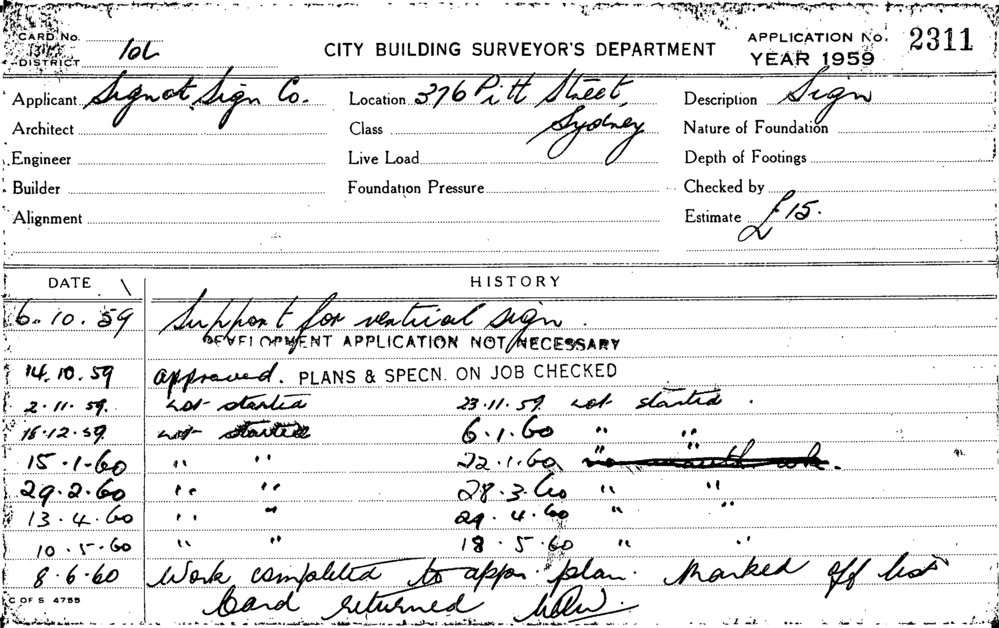 CARD No.
DISTRICT
CITY BUILDING SURVEYOR'S DEPARTMENT
APPLICATION No. 2311
YEAR 1959
Applicant Signot Sign Co. Location 376 Pitt Street, Description Sign
Architect Class Sydney Nature of Foundation
Engineer Live Load Depth of Footings
Builder Foundation Pressure Checked by
Alignment Estimate £15.
DATE HISTORY
6. 10. 59 Support for vertical sign.
DEVELOPMENT APPLICATION NOT NECESSARY
14. 10. 59 approved. PLANS & SPECN. ON JOB CHECKED
2. 11. 59. not started 23. 11. 59. not started.
16. 12. 59 not started 6. 1. 60 " "
15. 1. 60 " " 22. 1. 60 " "
29. 2. 60 " " 28. 3. 60 " "
13. 4. 60 " " 29. 4. 60 " "
10. 5. 60 " " 18. 5. 60 " "
8. 6. 60 Work completed to appr. plan. Marked off list
Card returned
C OF S 4755